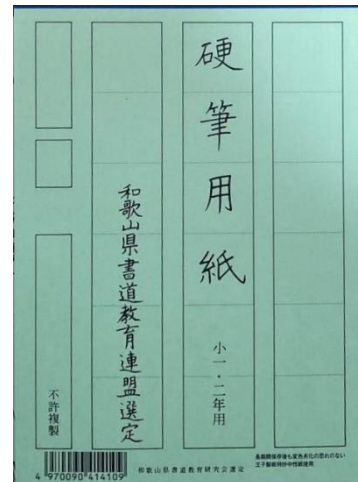 硬筆用紙
小一・二年用
和歌山県書道教育連盟選定
不許複製
4 970090 414109
和歌山県書道教育研究会選定
長期間保存後も変色劣化の恐れのない
王子製紙特抄中性紙使用